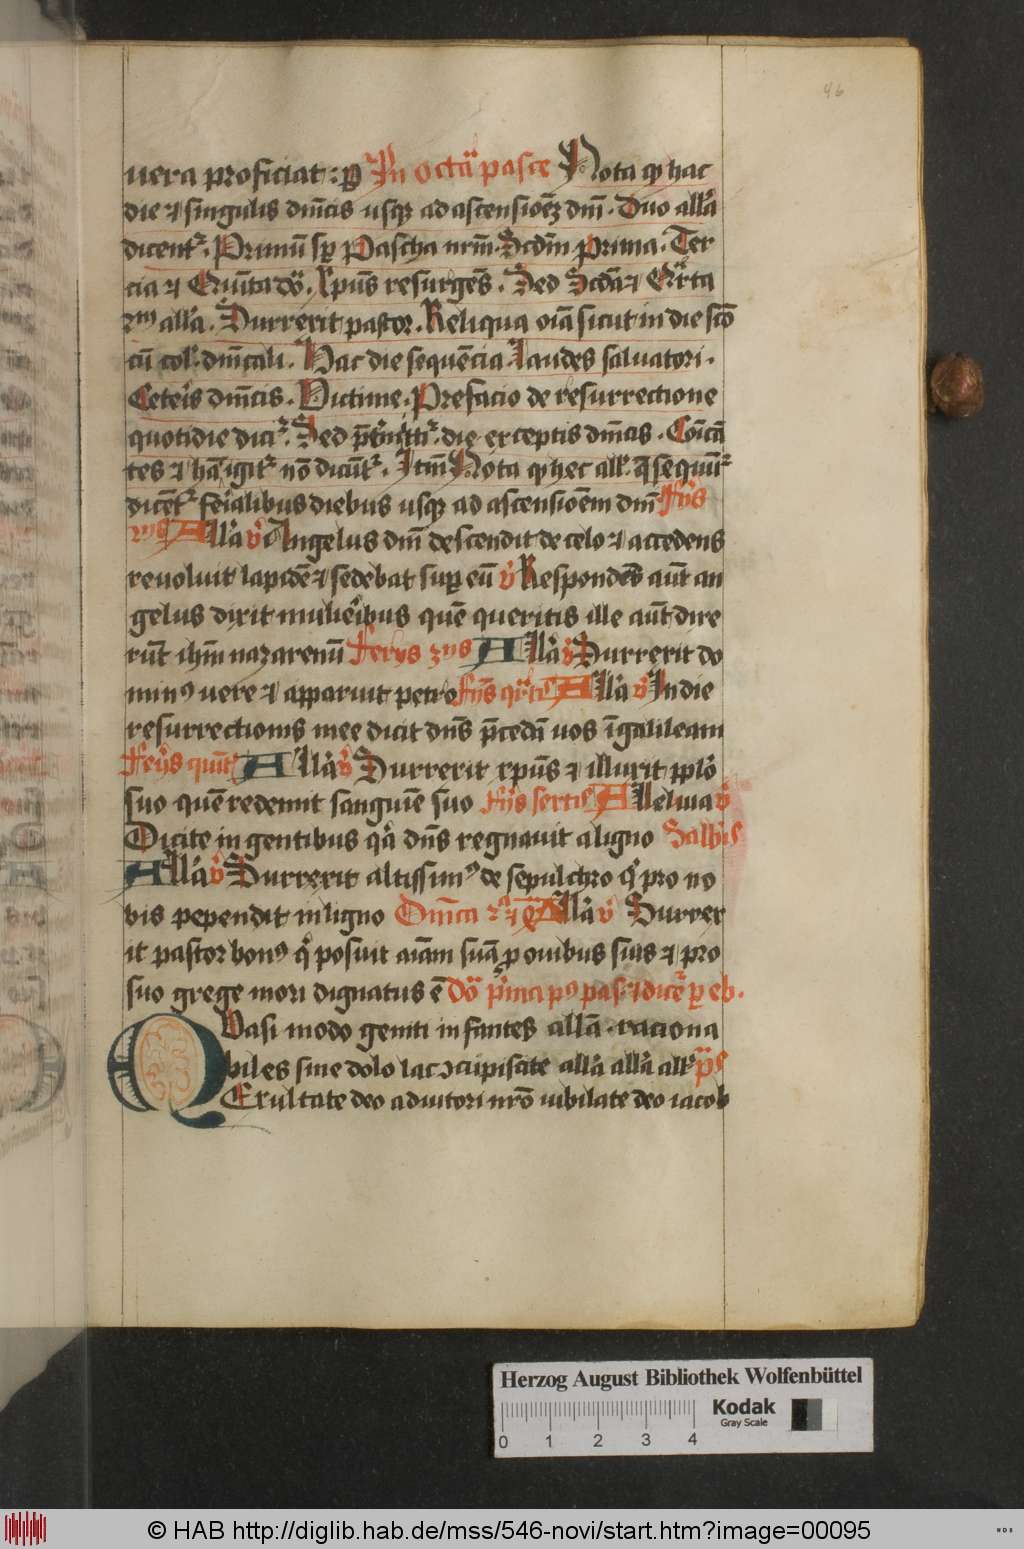 46
uera proficiat : p̱ In octa᷑ pasce Nota ꝙ hac
die ⁊ singulis dn̄icis usqꝫ ad ascensiōeꝫ dn̄i · Duo all'a
dicent᷑ · Primū sꝑ Pascha nr̄m · Scd̄m prima · Ter
cia ⁊ Quīta do᷑ · Xpūs resurgēs · Sed Scd̄a ⁊ Qr̄ta
all'a · Surrexit pastor · Reliqua oīa sicut in die scō
cū col' dn̄icali · Hac die sequēcia Laudes saluatori ·
Ceteis dn̄icis · Victime · Prefacio de resurrectione
quotidie dici᷑ · Sed die exceptis dn̄icis · Cōicā
tes ⁊ hāc igit᷑ nō dicūt᷑ · Itm̄ Nota ꝙ hec all' sequūt᷑
dicēt᷑ feīalibus diebus usqꝫ ad ascensiōem dn̄i Fīis
All'a v̊ Angelus dn̄i descendit de celo ⁊ accedens
reuoluit lapidē ⁊ sedebat suꝑ eū v̊ Respondēs aūt an
gelus dixit mulieībus quē queritis ille aūt dixe
rūt ihm̄ nazarenū Ferijs 3ijs All'a v̊ Surrexit do
minꝰ uere ⁊ apparuit petro Fīis qr̄tis All'a v̊ In die
resurrectionis mee dicit dn̄s p̄cedā uos ī galileam
Feījs quīt' All'a v̊ Surrexit xpūs ⁊ illuxit pplo
suo quē redemit sanguīe suo Fīis sextis Alleluia v̊
Dicite in gentibus qa dn̄s regnauit a ligno Sabb'is
All'a v̊ Surrexit altissimꝰ de sepulchro qi pro no
bis pependit in ligno Dn̄ica All'a v̊ Surrex
it pastor bonꝰ qi posuit aīam suā ꝓ ouibus suis ⁊ pro
suo grege mori dignatus ē Do᷑ p̄ima pꝰ pas'
QVasi modo geniti infantes all'a · raciona
biles sine dolo lac ꝯcupiscite all'a all'a all' p̄s
Exultate deo adiutori nr̄o iubilate deo iacob
Herzog August Bibliothek Wolfenbüttel
Kodak
Gray Scale
0 1 2 3 4
© HAB http://diglib.hab.de/mss/546-novi/start.htm?image=00095